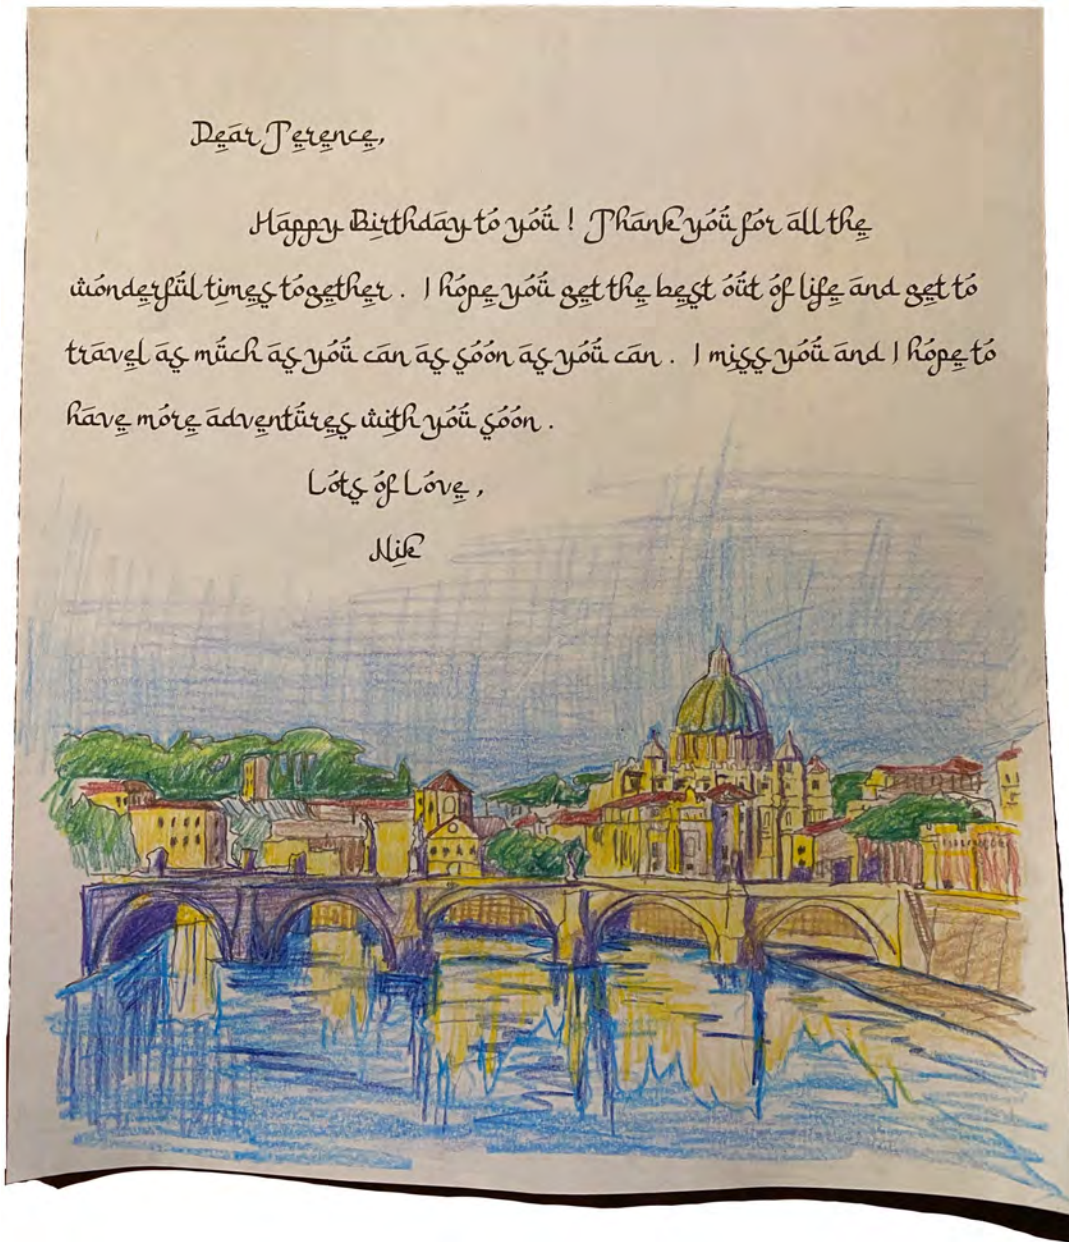 Dear Terence,
Happy Birthday to you! Thank you for all the
wonderful times together. I hope you get the best out of life and get to
travel as much as you can as soon as you can. I miss you and I hope to
have more adventures with you soon.
Lots of Love,
Nik